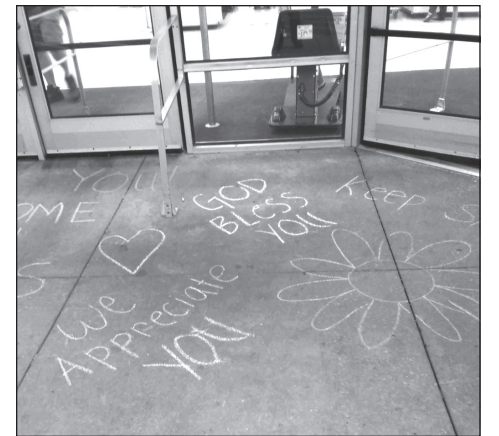 YOU!!
OME
GOD
BLESS
YOU
Keep S
We
Appreciate
YOU